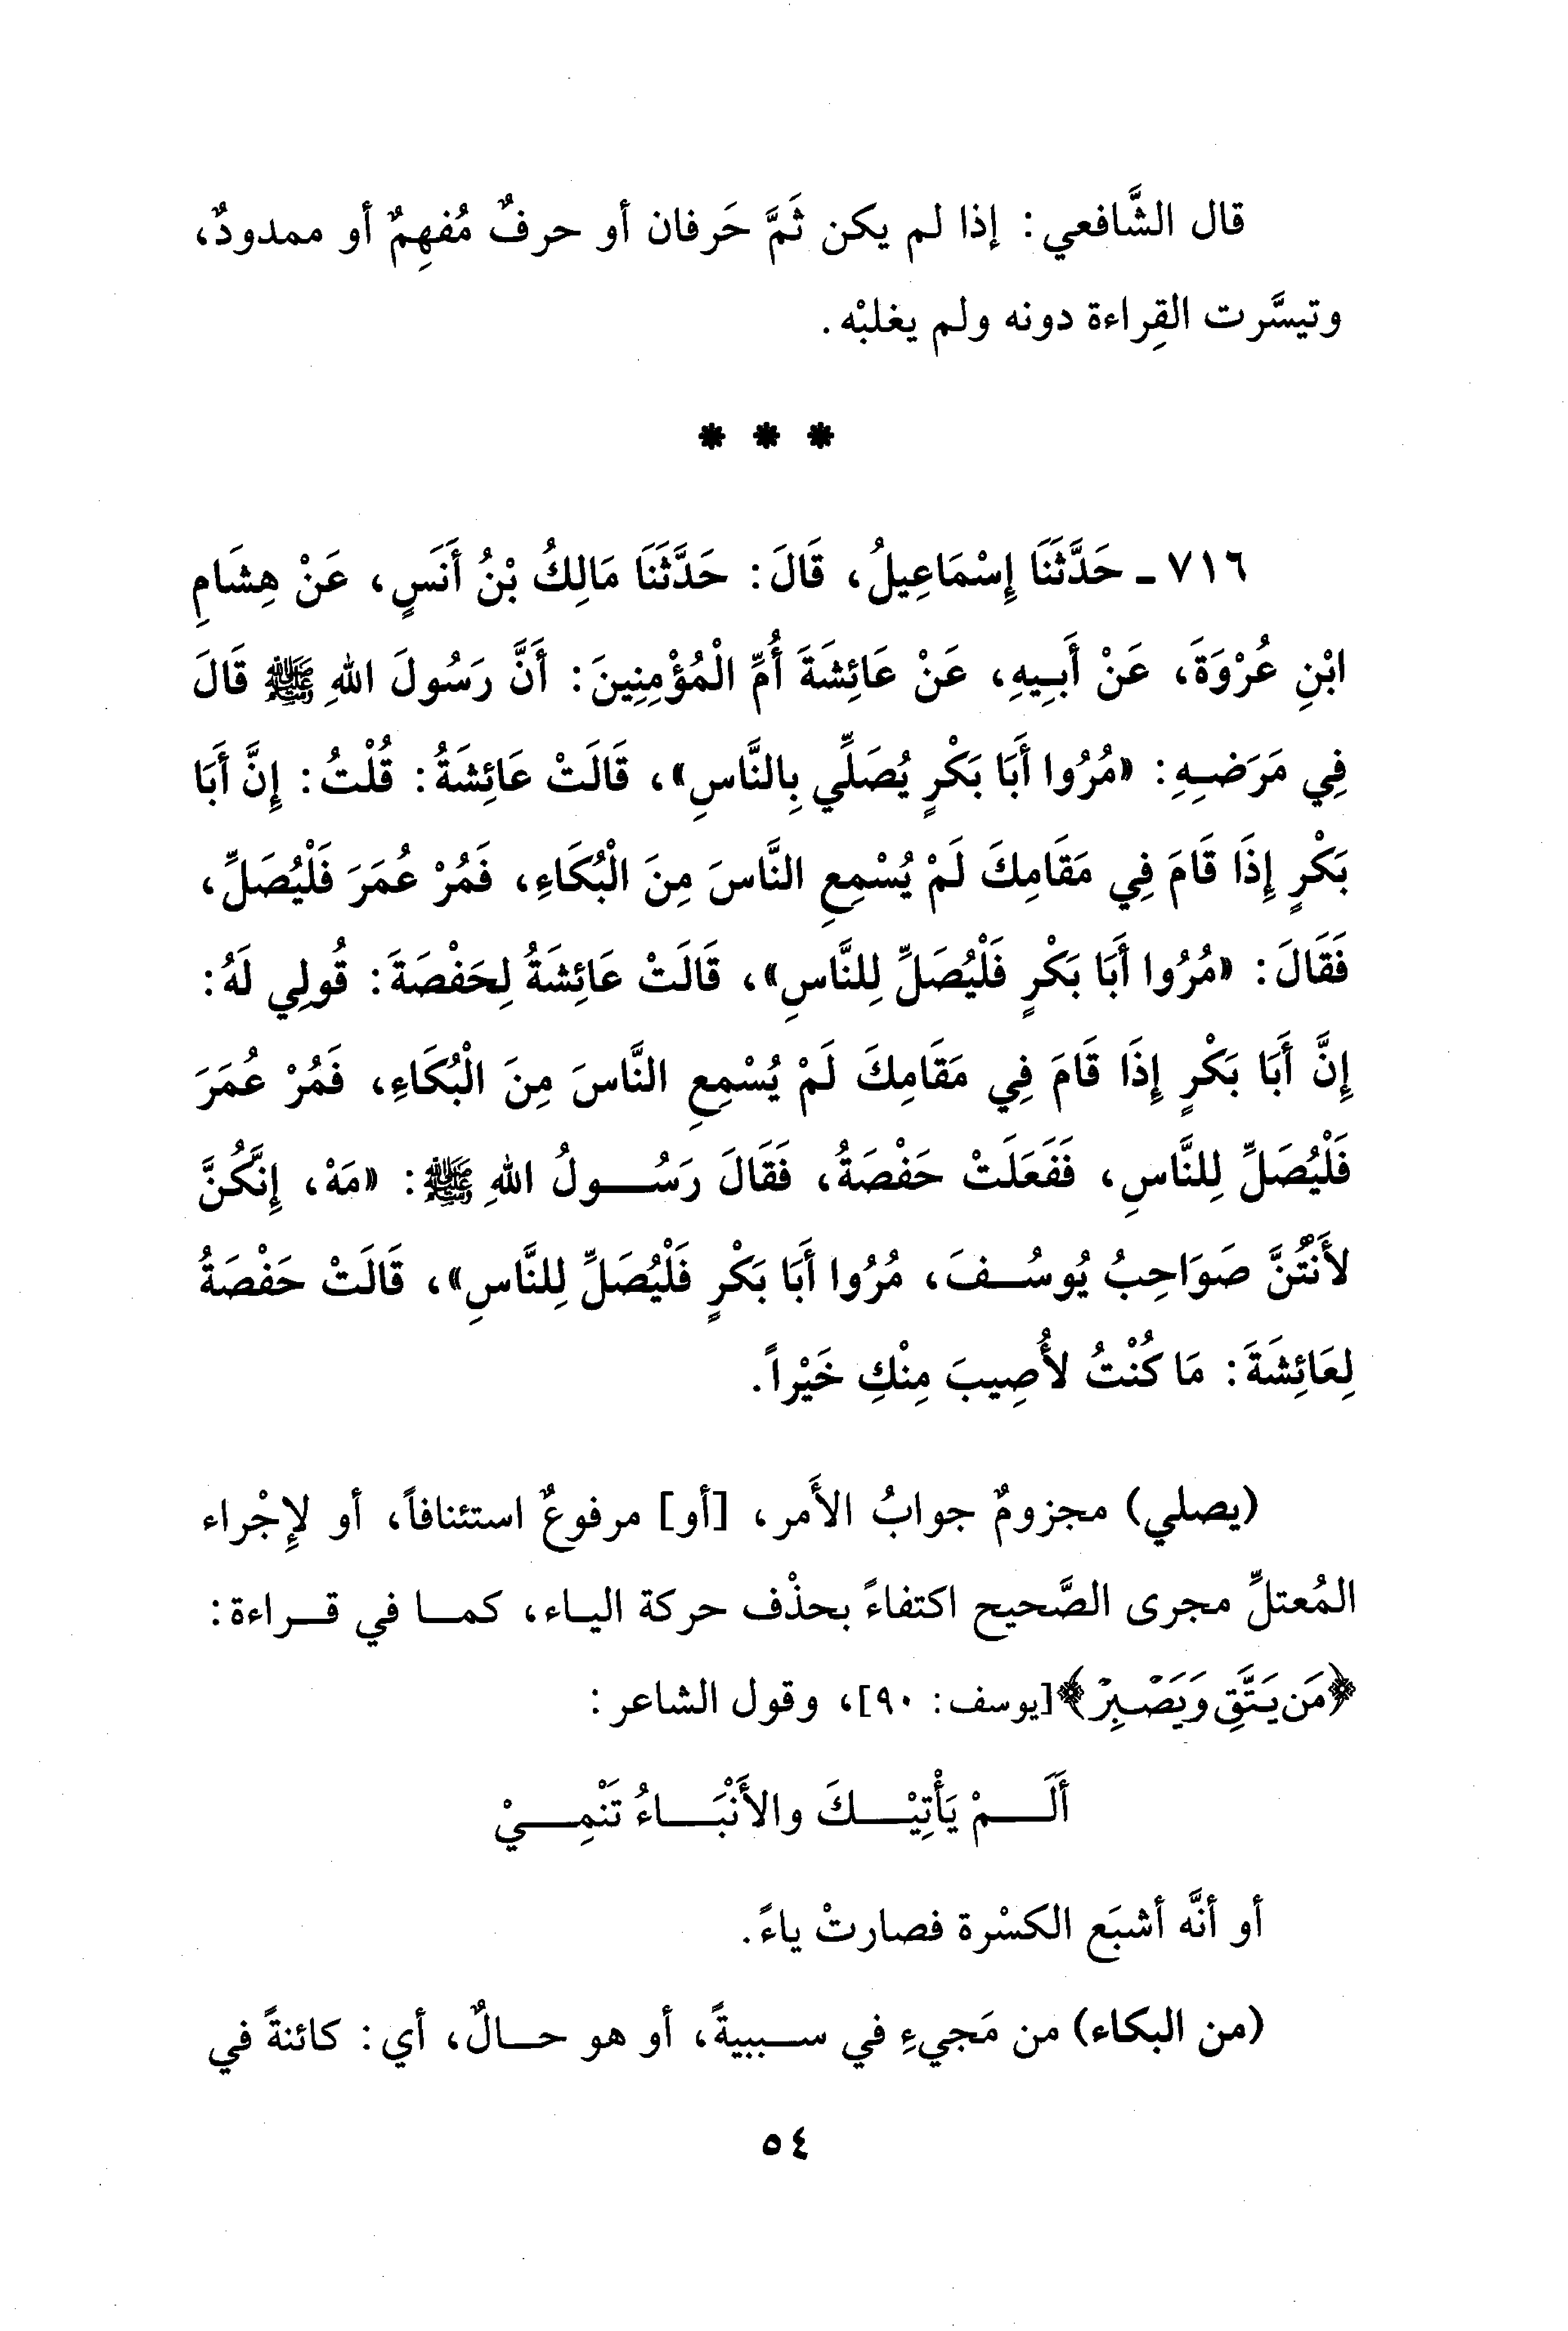 قال الشَّافعي: إذا لم يكن ثَمَّ حَرفان أو حرفٌ مُفهِمٌ أو ممدودٌ،
وتيسَّرت القِراءة دونه ولم يغلبْه.
* * *
٧١٦ - حَدَّثَنَا إِسْمَاعِيلُ، قَالَ: حَدَّثَنَا مَالِكُ بْنُ أَنَسٍ، عَنْ هِشَامِ
ابْنِ عُرْوَةَ، عَنْ أَبِيهِ، عَنْ عَائِشَةَ أُمِّ الْمُؤْمِنِينَ: أَنَّ رَسُولَ اللهِ ﷺ قَالَ
فِي مَرَضِهِ: «مُرُوا أَبَا بَكْرٍ يُصَلِّي بِالنَّاسِ»، قَالَتْ عَائِشَةُ: قُلْتُ: إِنَّ أَبَا
بَكْرٍ إِذَا قَامَ فِي مَقَامِكَ لَمْ يُسْمِعِ النَّاسَ مِنَ الْبُكَاءِ، فَمُرْ عُمَرَ فَلْيُصَلِّ،
فَقَالَ: «مُرُوا أَبَا بَكْرٍ فَلْيُصَلِّ لِلنَّاسِ»، قَالَتْ عَائِشَةُ لِحَفْصَةَ: قُولِي لَهُ:
إِنَّ أَبَا بَكْرٍ إِذَا قَامَ فِي مَقَامِكَ لَمْ يُسْمِعِ النَّاسَ مِنَ الْبُكَاءِ، فَمُرْ عُمَرَ
فَلْيُصَلِّ لِلنَّاسِ، فَفَعَلَتْ حَفْصَةُ، فَقَالَ رَسُولُ اللهِ ﷺ: «مَهْ، إِنَّكُنَّ
لأَنْتُنَّ صَوَاحِبُ يُوسُفَ، مُرُوا أَبَا بَكْرٍ فَلْيُصَلِّ لِلنَّاسِ»، قَالَتْ حَفْصَةُ
لِعَائِشَةَ: مَا كُنْتُ لأُصِيبَ مِنْكِ خَيْراً.
(يصلي) مجزومٌ جوابُ الأَمر، [أو] مرفوعٌ استئنافاً، أو لإِجْراء
المُعتلِّ مجرى الصَّحيح اكتفاءً بحذْف حركة الياء، كما في قراءة:
﴿مَن يَتَّقِ وَيَصْبِرْ﴾ [يوسف: ٩٠]، وقول الشاعر:
أَلَمْ يَأْتِيْكَ والأَنْبَاءُ تَنْمِيْ
أو أنَّه أشبَع الكسْرة فصارتْ ياءً.
(من البكاء) من مَجيءِ في سببيةً، أو هو حالٌ، أي: كائنةً في
٥٤